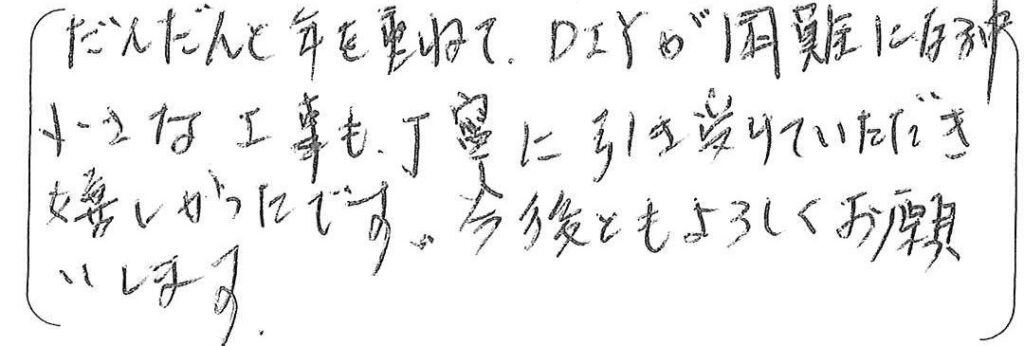 だんだんと年を重ねて、DIYが困難になる中
小さな工事も、丁寧に引き受けていただき
嬉しかったです。今後ともよろしくお願
いします。